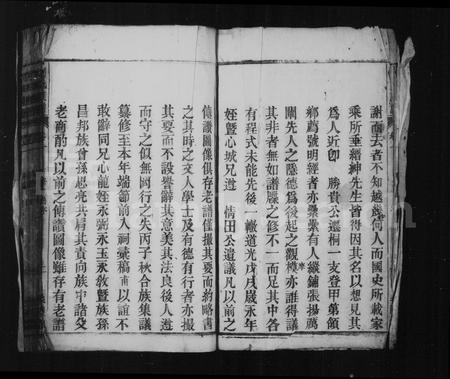 謝而去者不知越幾何人而國史所載家
乘所垂縉紳先生皆得因其名以想見其
爲人近卽 勝貴公還桐一支登甲第領
鄉薦號明經者亦纍纍有人縱鋪張揚萬
闡先人之隱德爲後起之觀模亦誰得議
其非者無如譜牒之修不一而足其中各
有程式未能先後一轍道光戊戌歲永年
姪暨心城兄遵 情田公遺議凡以前之
傳讚圖像俱存老譜僅撮其要而約略書
之其時之文人學士及有德有行者亦撮
其要而不設譽辭其意美其法良後人遵
而守之似無閡行之失丙子秋合族集議
纂修至本年端節前入祠彙稿 以誼不
敢辭同兄心龍姪永弼永玉永敎暨族孫
昌邦族曾孫思亮共肩其責向族中諸父
老商酌凡以前之傳讚圖像雖存有老譜